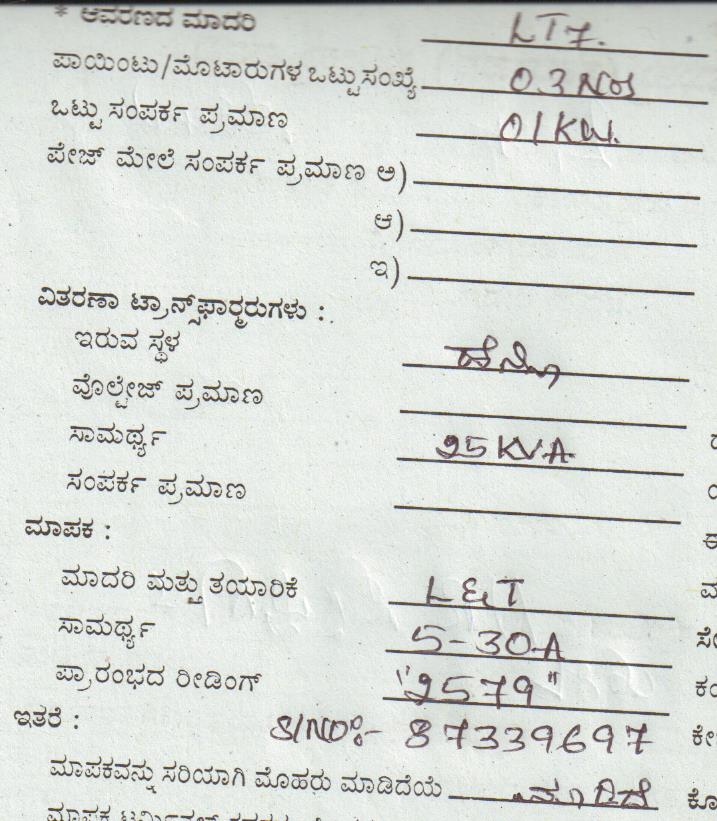 * ಆವರಣದ ಮಾದರಿ LT7.
ಪಾಯಿಂಟು/ಮೊಟಾರುಗಳ ಒಟ್ಟು ಸಂಖ್ಯೆ 03 Nos
ಒಟ್ಟು ಸಂಪರ್ಕ ಪ್ರಮಾಣ 01 KW.
ಪೇಜ್ ಮೇಲೆ ಸಂಪರ್ಕ ಪ್ರಮಾಣ ಅ)
ಆ)
ಇ)
ವಿತರಣಾ ಟ್ರಾನ್ಸ್‌ಫಾರ್‍ಮರುಗಳು :
ಇರುವ ಸ್ಥಳ
ವೊಲ್ಟೇಜ್ ಪ್ರಮಾಣ
ಸಾಮರ್ಥ್ಯ 25 KVA
ಸಂಪರ್ಕ ಪ್ರಮಾಣ
ಮಾಪಕ :
ಮಾದರಿ ಮತ್ತು ತಯಾರಿಕೆ L&T
ಸಾಮರ್ಥ್ಯ 5-30A
ಪ್ರಾರಂಭದ ರೀಡಿಂಗ್ "2579"
ಇತರೆ : S/NO:- 87339697
ಮಾಪಕವನ್ನು ಸರಿಯಾಗಿ ಮೊಹರು ಮಾಡಿದೆಯೆ ಮಾಡಿದೆ